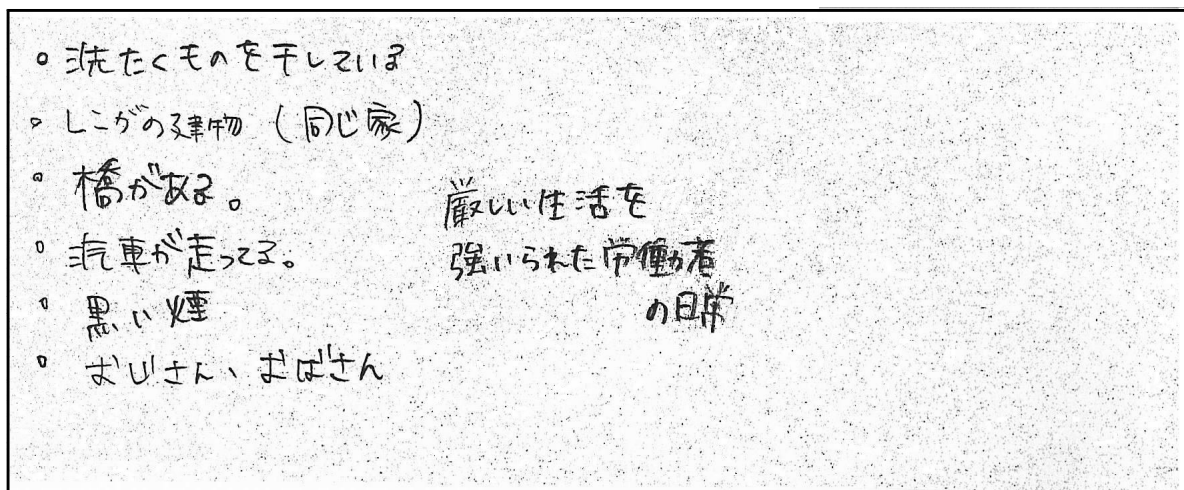 。洗たくものを干している
。レンガの建物（同じ家）
。橋がある。
。汽車が走ってる。
。黒い煙
。おじさん、おばさん
厳しい生活を
強いられた労働者
の日常